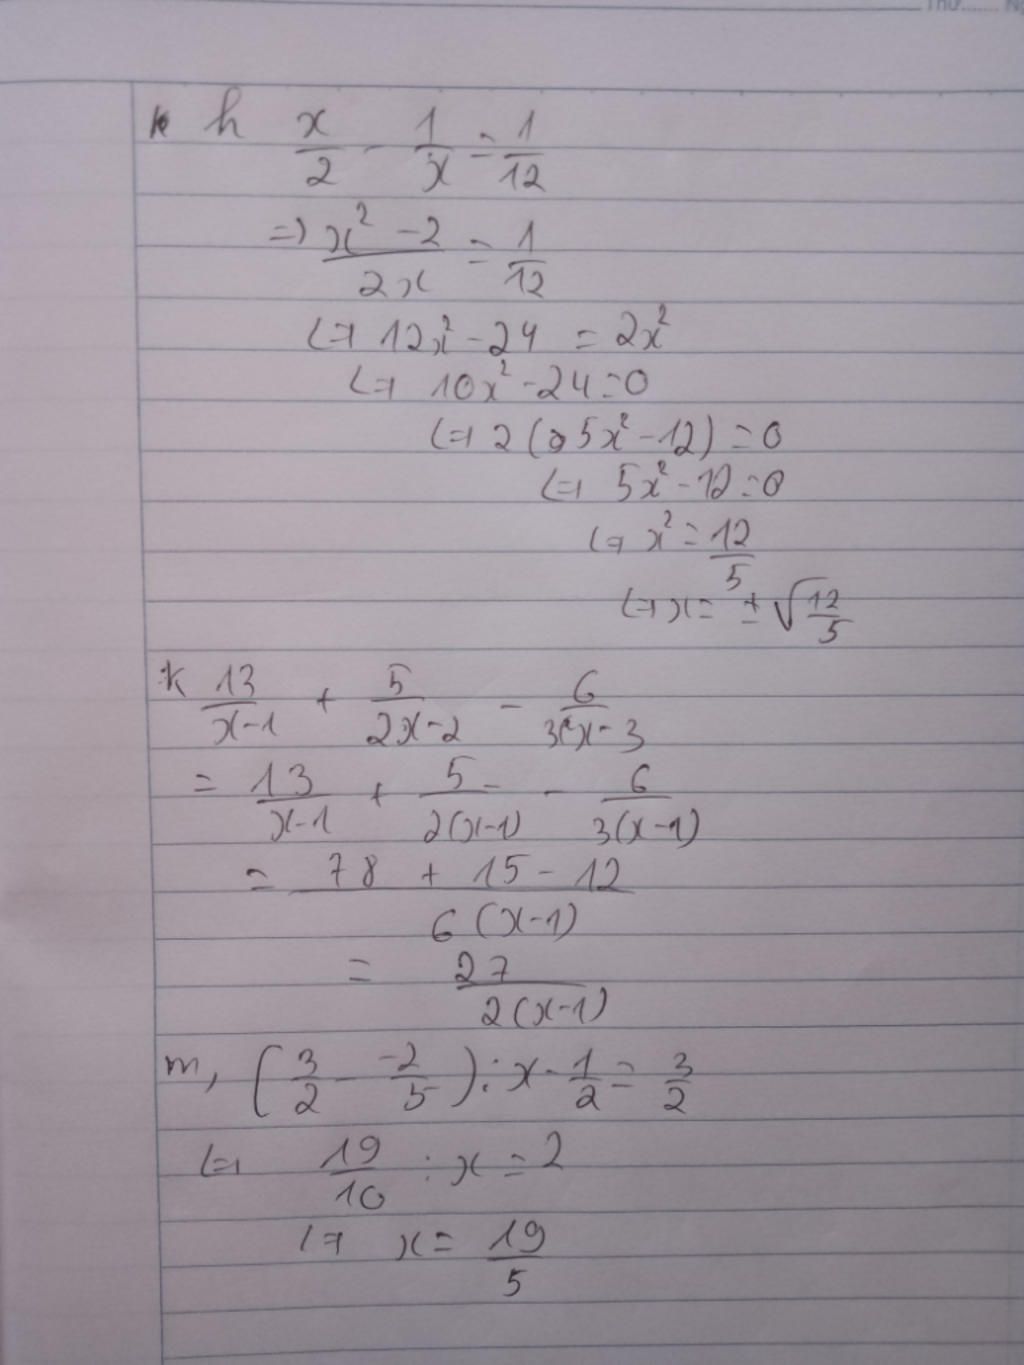 Thứ....... Ng
h x/2 - 1/x = 1/12
=> (x² - 2)/(2x) = 1/12
<=> 12x² - 24 = 2x²
<=> 10x² - 24 = 0
<=> 2(5x² - 12) = 0
<=> 5x² - 12 = 0
<=> x² = 12/5
<=> x = ± √(12/5)
k 13/(x-1) + 5/(2x-2) - 6/(3x-3)
= 13/(x-1) + 5/(2(x-1)) - 6/(3(x-1))
= (78 + 15 - 12)/(6(x-1))
= 27/(2(x-1))
m, (3/2 - -2/5) : x - 1/2 = 3/2
<=> 19/10 : x = 2
<=> x = 19/5